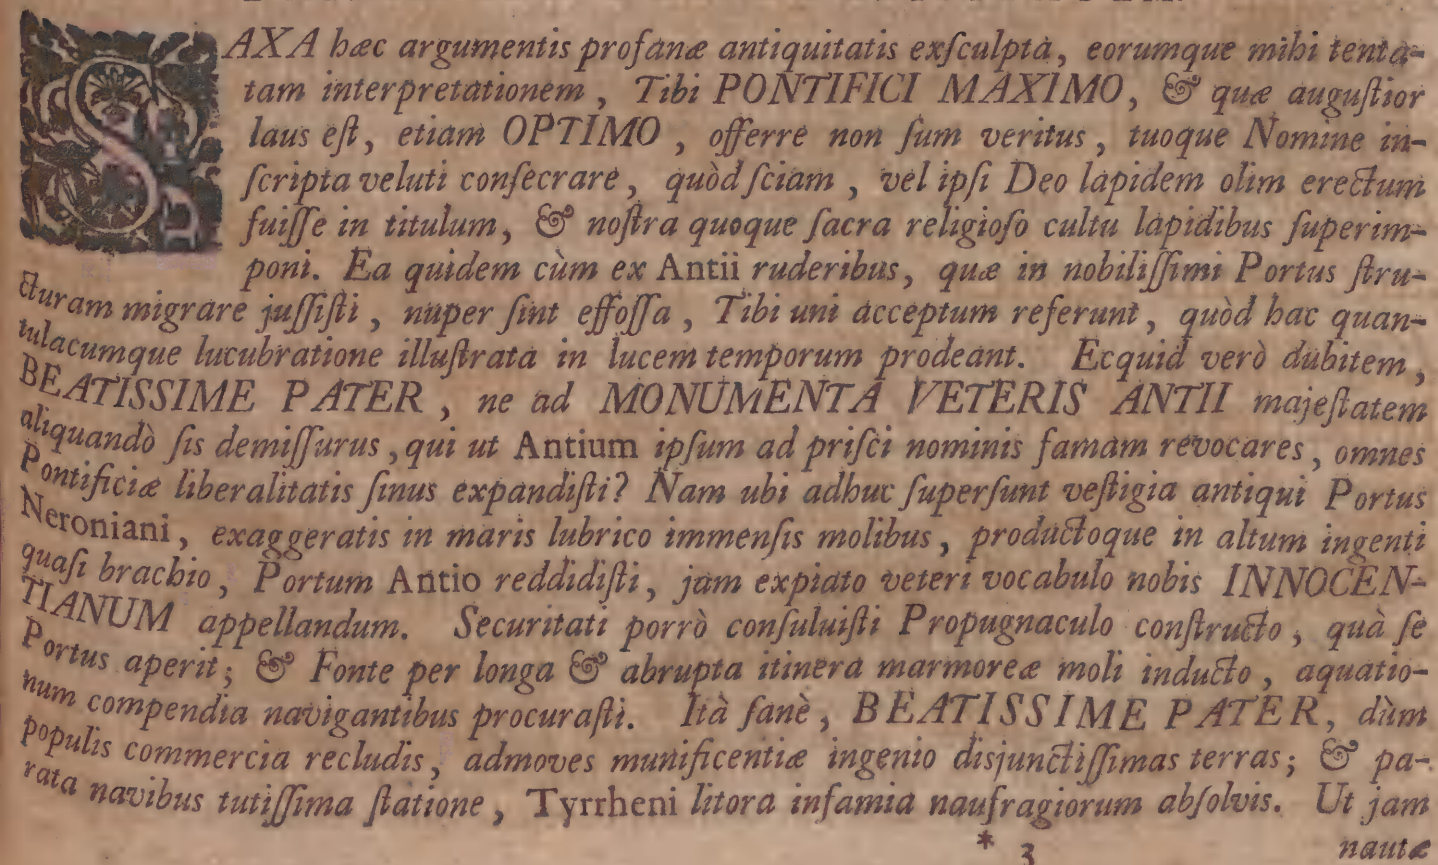 SAXA hæc argumentis profanæ antiquitatis exſculpta, eorumque mihi tenta-
tam interpretationem, Tibi PONTIFICI MAXIMO, & quæ auguſtior
laus eſt, etiam OPTIMO, offerre non ſum veritus, tuoque Nomine in-
ſcripta veluti conſecrare, quòd ſciam, vel ipſi Deo lapidem olim erectum
fuiſſe in titulum, & noſtra quoque ſacra religioſo cultu lapidibus ſuperim-
poni. Ea quidem cùm ex Antii ruderibus, quæ in nobiliſſimi Portus ſtru-
cturam migrare juſſiſti, nuper ſint effoſſa, Tibi uni acceptum referunt, quòd hac quan-
tulacumque lucubratione illuſtrata in lucem temporum prodeant. Ecquid verò dubitem,
BEATISSIME PATER, ne ad MONUMENTA VETERIS ANTII majeſtatem
aliquandò ſis demiſſurus, qui ut Antium ipſum ad priſci nominis famam revocares, omnes
Pontificiæ liberalitatis ſinus expandiſti? Nam ubi adhuc ſuperſunt veſtigia antiqui Portus
Neroniani, exaggeratis in maris lubrico immenſis molibus, productoque in altum ingenti
quaſi brachio, Portum Antio reddidiſti, jam expiato veteri vocabulo nobis INNOCEN-
TIANUM appellandum. Securitati porrò conſuluiſti Propugnaculo conſtructo, quà ſe
Portus aperit; & Fonte per longa & abrupta itinera marmoreæ moli inducto, aquatio-
num compendia navigantibus procuraſti. Ità ſanè, BEATISSIME PATER, dùm
populis commercia recludis, admoves munificentiæ ingenio disjunctiſſimas terras; & pa-
rata navibus tutiſſima ſtatione, Tyrrheni litora infamia naufragiorum abſolvis. Ut jam
* 3
nautæ